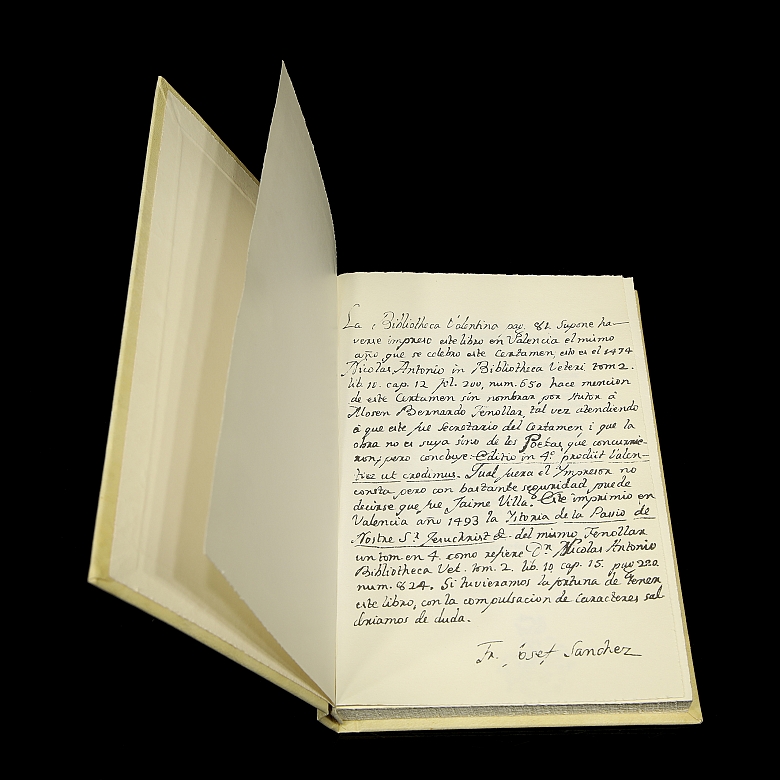 La Bibliotheca Valentina pag. 81. Supone ha-
verse impreso este libro en Valencia el mismo
año que se celebro este Certamen, esto es el 1474
Nicolas Antonio in Bibliotheca Veteri, tom 2.
lib. 10. cap. 12 fol. 200, num. 650 hace mencion
de este Certamen sin nombrar por Autor á
Mosen Bernardo Fenollar, tal vez atendiendo
á que este fue Secretario del Certamen i que la
obra no es suya sino de los Poetas que concurrie-
ron; pero concluye: Editio in 4º prodiit Valen-
tiae ut credimus. Qual fuera el Ympresor no
consta pero con bastante seguridad puede
decirse que fue Jaime Villa. Este imprimio en
Valencia año 1493 la Ystoria de la Passio de
Nostre Sr. Jesuchrist &. del mismo Fenollar
un tom en 4. como refiere Dn. Nicolas Antonio
Bibliotheca Vet. tom. 2. lib. 10 cap. 15. pag 220
num. 824. Si tuvieramos la fortuna de tener
este libro, con la compulsacion de caracteres sal
driamos de duda.
Fr. Josef Sanchez